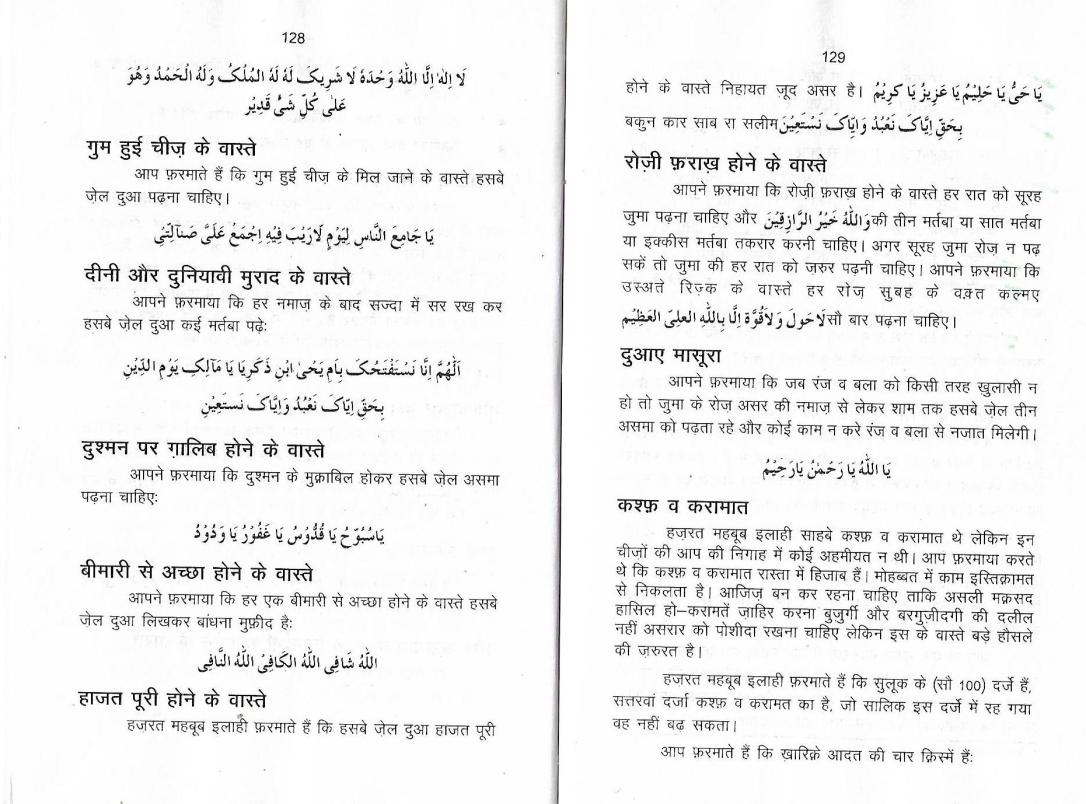 128
لَا اِلٰهَ اِلَّا اللّٰهُ وَحْدَهٗ لَا شَرِيكَ لَهٗ لَهُ الْمُلْکُ وَلَهُ الْحَمْدُ وَهُوَ
عَلٰى كُلِّ شَىْءٍ قَدِيْر
गुम हुई चीज़ के वास्ते
आप फ़रमाते हैं कि गुम हुई चीज़ के मिल जाने के वास्ते हसबे
ज़ेल दुआ पढ़ना चाहिए।
يَا جَامِعَ النَّاسِ لِيَوْمٍ لَارَيْبَ فِيْهِ اِجْمَعْ عَلَىَّ ضَآلَّتِىْ
दीनी और दुनियावी मुराद के वास्ते
आपने फ़रमाया कि हर नमाज़ के बाद सज्दा में सर रख कर
हसबे ज़ेल दुआ कई मर्तबा पढ़ेः
اَللّٰهُمَّ اِنَّا نَسْتَفْتَحُکَ بِاُمِ يَحْىٰ ابْنِ ذَكَرِيَا يَا مَآلِکِ يَوْمِ الدِّيْنِ
بِحَقِ اِيَّاکَ نَعْبُدُ وَاِيَّاکَ نَستَعِيْنِ
दुश्मन पर ग़ालिब होने के वास्ते
आपने फ़रमाया कि दुश्मन के मुक़ाबिल होकर हसबे ज़ेल असमा
पढ़ना चाहिएः
يَاسُبُّوْحُ يَا قُدُّوْسُ يَا غَفُوْرُ يَا وَدُوْدُ
बीमारी से अच्छा होने के वास्ते
आपने फ़रमाया कि हर एक बीमारी से अच्छा होने के वास्ते हसबे
ज़ेल दुआ लिखकर बांधना मुफ़ीद हैः
اَللّٰهُ شَافِى اَللّٰهُ الكَافِىْ اَللّٰهُ النَّافِى
हाजत पूरी होने के वास्ते
हज़रत महबूब इलाही फ़रमाते हैं कि हसबे ज़ेल दुआ हाजत पूरी
129
होने के वास्ते निहायत ज़ूद असर है। يَا حَىُّ يَا حَلِيْمُ يَا عَزِيزُ يَا كَرِيْمُ
बकुन कार साब रा सलीम بِحَقِ اِيَّاکَ نَعْبُدُ وَاِيَّاکَ نَسْتَعِيْنَ
रोज़ी फ़राख़ होने के वास्ते
आपने फ़रमाया कि रोज़ी फ़राख़ होने के वास्ते हर रात को सूरह
जुमा पढ़ना चाहिए और وَاللّٰهُ خَيْرُ الرَّازِقِيْنَ की तीन मर्तबा या सात मर्तबा
या इक्कीस मर्तबा तकरार करनी चाहिए। अगर सूरह जुमा रोज़ न पढ़
सकें तो जुमा की हर रात को ज़रुर पढ़नी चाहिए। आपने फ़रमाया कि
उस्अते रिज़्क के वास्ते हर रोज़ सुबह के वक़्त कल्मए
لَاحَولَ وَلَاقُوَّةَ اِلَّا بِاللّٰهِ العلِىِّ العَظِيْمِ सौ बार पढ़ना चाहिए।
दुआए मासूरा
आपने फ़रमाया कि जब रंज व बला को किसी तरह खुलासी न
हो तो जुमा के रोज़ असर की नमाज़ से लेकर शाम तक हसबे ज़ेल तीन
असमा को पढ़ता रहे और कोई काम न करे रंज व बला से नजात मिलेगी।
يَا اَللّٰهُ يَا رَحْمٰنُ يَارَحِيْمُ
कश्फ़ व करामात
हज़रत महबूब इलाही साहबे कश्फ़ व करामात थे लेकिन इन
चीज़ों की आप की निगाह में कोई अहमीयत न थी। आप फ़रमाया करते
थे कि कश्फ़ व करामात रास्ता में हिजाब हैं। मोहब्बत में काम इस्तिक़ामत
से निकलता है। आजिज़ बन कर रहना चाहिए ताकि असली मक़सद
हासिल हो–करामतें ज़ाहिर करना बुज़ुर्गी और बरगुज़ीदगी की दलील
नहीं असरार को पोशीदा रखना चाहिए लेकिन इस के वास्ते बड़े हौसले
की ज़रुरत है।
हज़रत महबूब इलाही फ़रमाते हैं कि सुलूक के (सौ 100) दर्जे हैं,
सत्तरवां दर्जा कश्फ़ व करामत का है, जो सालिक इस दर्जे में रह गया
वह नहीं बढ़ सकता।
आप फ़रमाते हैं कि ख़ारिक़े आदत की चार क़िस्में हैंः